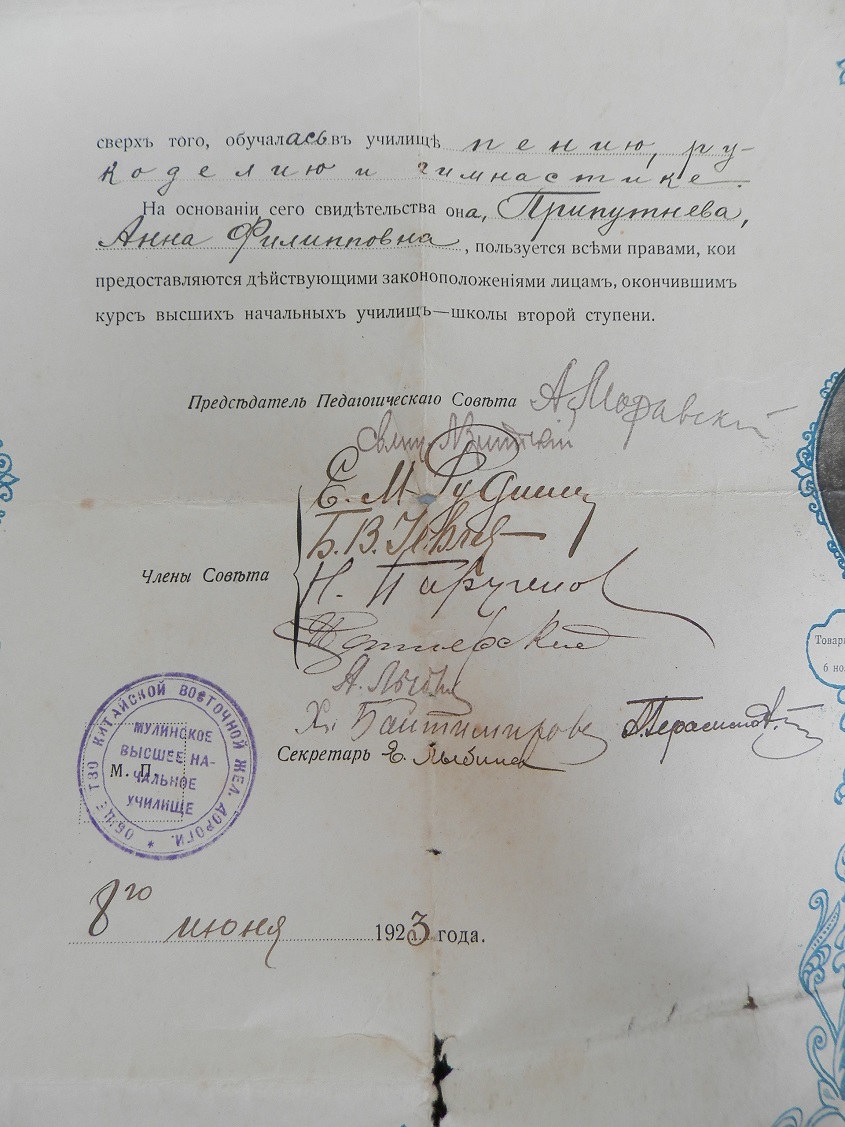 сверхъ того, обучалась въ училищѣ пению, ру-
коделию и гимнастике.
На основаніи сего свидѣтельства она, Припутнева,
Анна Филипповна, пользуется всѣми правами, кои
предоставляются дѣйствующими законоположеніями лицамъ, окончившимъ
курсъ высшихъ начальныхъ училищъ—школы второй ступени.
Предсѣдатель Педагогическаго Совѣта А. Моравский
Е. М.
Б. В.
Члены Совѣта
Н.
А.
Х. Байтимирова П. Герасимов
Секретарь Е.
ОБЩЕСТВО КИТАЙСКОЙ ВОСТОЧНОЙ ЖЕЛ. ДОРОГИ. *
МУЛИНСКОЕ
ВЫСШЕЕ НА-
ЧАЛЬНОЕ
УЧИЛИЩЕ
М. П.
8го июня 1923 года.
Товар
6 но